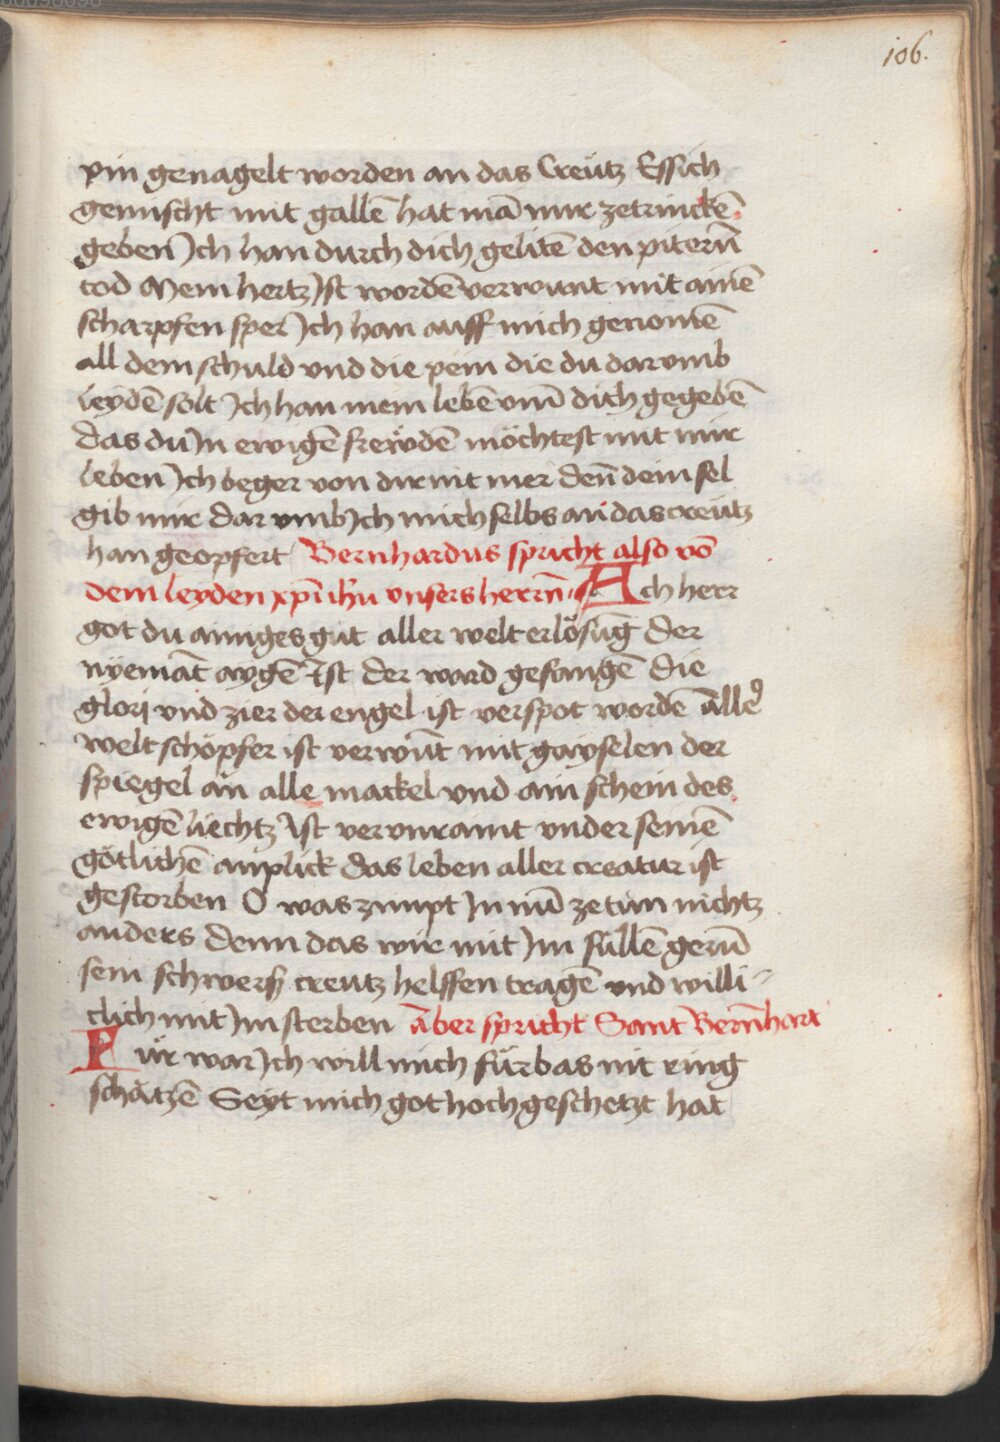 106.
pin genagelt worden an das Creütz Essich
gemischt mit gallē hat mā mir zetrinckē
geben Ich han durch dich gelitē den piterñ
tod Mein hertz Ist wordē verwunt mit ainē
scharpfen sper Ich han auff mich genomē
all dein schuld vnd die pein die du dar vmb
leydē solt Ich han mein lebē vm̄ dich gegebē
das du In ewigē frewdē möchtest mit mir
leben Ich beger von dir nit mer deñ dein sel
gib mir dar vmb Ich mich selbs an das creütz
han geopfert Bernhardus spricht also vō
dem leyden xp̄i ih̄u vnsers herrñ Ach herr
got du ainiges gut aller welt erlösūg der
nyemāt aygē Ist der ward gefangē die
glorj vnd zier der engel ist verspot wordē alle⁹
welt schöpfer ist verwūt mit gayselen der
spiegel an alle mackel vnd ain schein des
ewigē liechtz Ist vervnraint vnder seinē
götlichē anplick das leben aller creatur ist
gestorben O was zimpt In nū ze tun nichtz
anders denn das wir mit Im süllē gerñ
sein schwerß creutz helffen tragē vnd willi=
clich mit Im sterben aber spricht Sant Berñhart
Für war Ich will mich fürbas nit ring
schätzē Seyt mich got hoch geschetzt hat